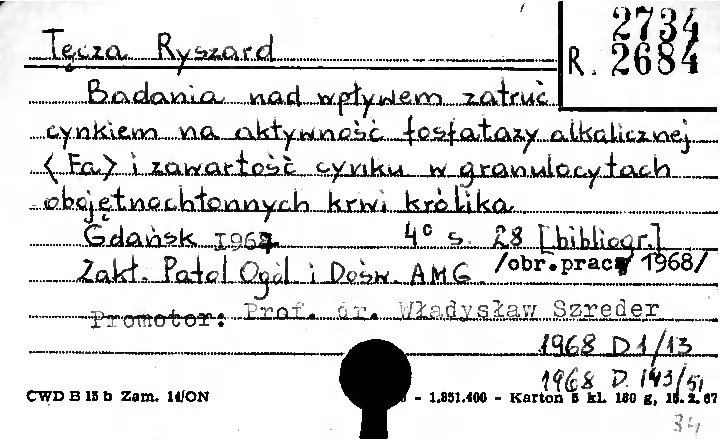 2734
R. 2684
Tęcza Ryszard
Badania nad wpływem zatruć
cynkiem na aktywność fosfatazy alkalicznej
<Fa> i zawartość cynku w granulocytach
obojętnochłonnych krwi królika
Gdańsk 1967 4° s. 28 [bibliogr.]
Zakł. Patol Ogól i Dośw. AMG. /obr.pracy 1968/
Promotor: Prof. dr. Władysław Szreder
1968 D1/13
1968 D. 143/51
CWD E 15 b Zam. 14/ON - 1.851.400 - Karton 5 kl. 180 g, 15. 2. 67
34